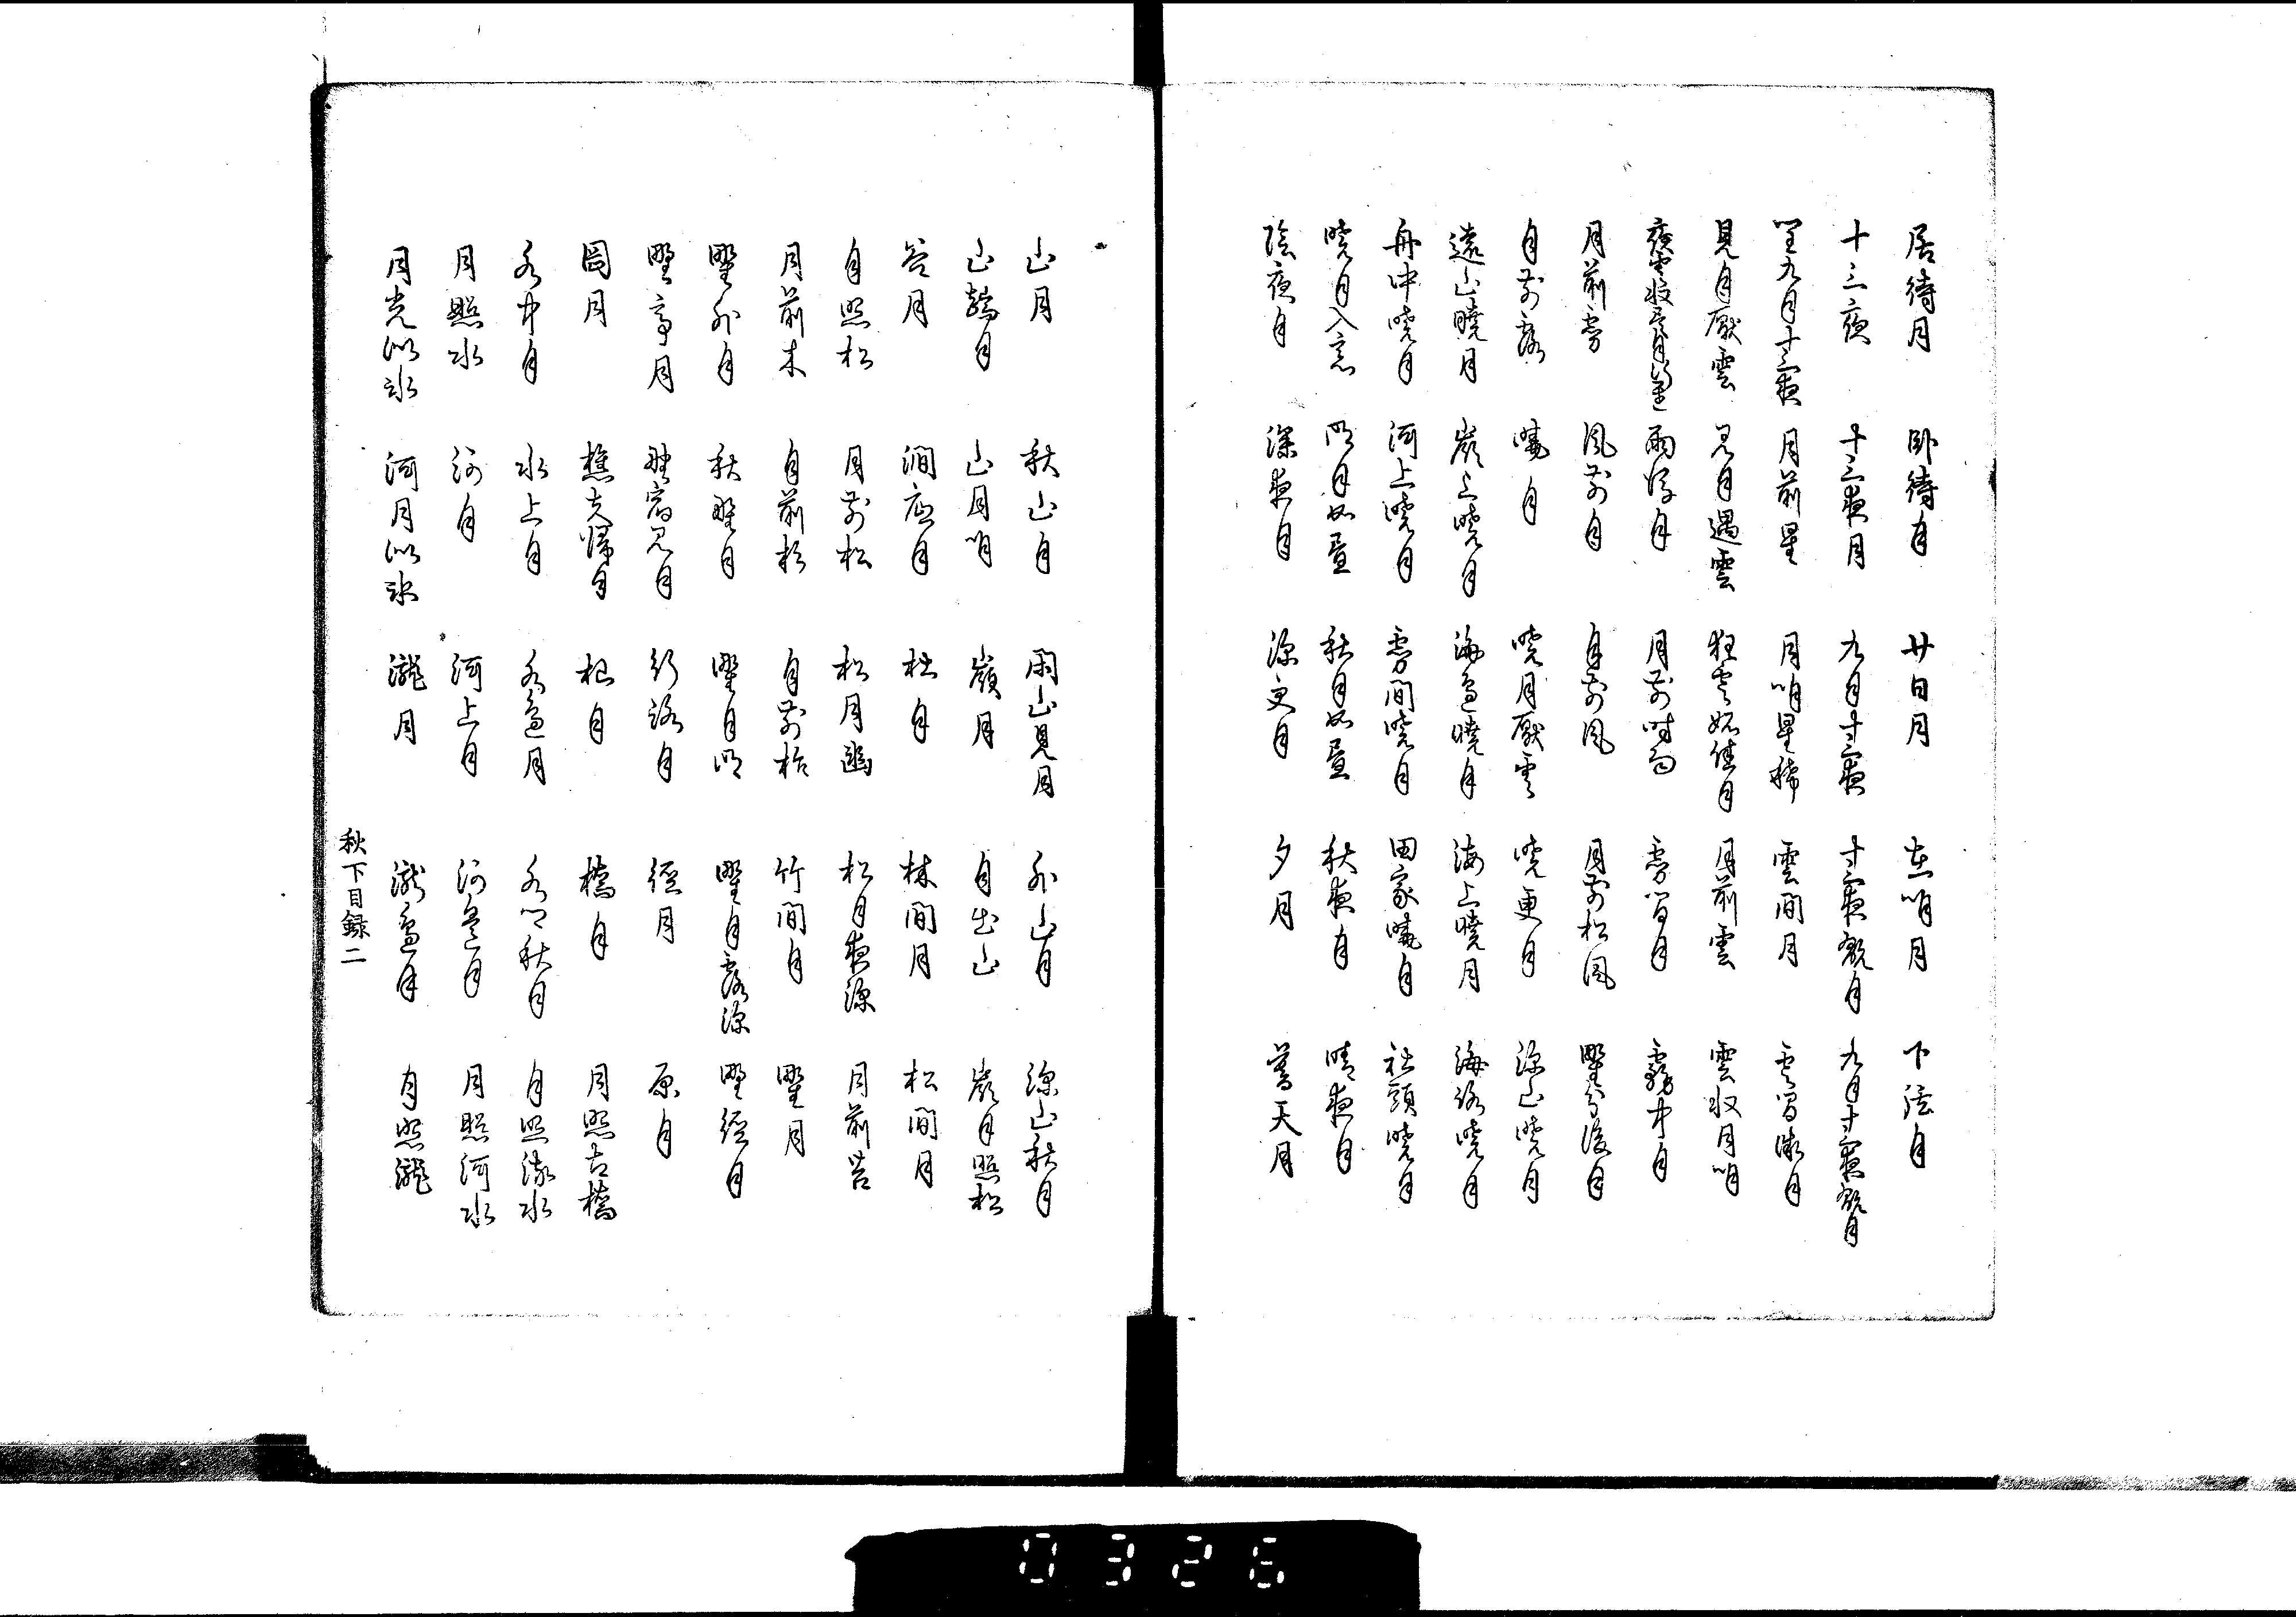 居待月 臥待月 廿日月 在明月 下弦月
十三夜 十三夜月 九月十三夜 十三夜翫月 九月十三夜翫月
閏九月十三夜 月前星 月明星稀 雲間月 雲間微月
見月厭雲 見月遇雲 狂雲妬佳月 月前雲 雲収月明
夜雲収尽月行遅 雨後月 月前時雨 霧間月 霧中月
月前霧 風前月 月前風 月前松風 野分後月
月前露 暁月 暁月厭雲 暁更月 深山暁月
遠山暁月 嶺上暁月 海辺暁月 海上暁月 海路暁月
舟中暁月 河上暁月 霧間暁月 田家暁月 社頭暁月
暁月入窓 明月如昼 秋月如昼 秋夜月 晴夜月
陰夜月 深夜月 深更月 夕月 暮天月
山月 秋山月 閑山見月 外山月 深山秋月
山朝月 山月明 嶺月 月出山 嶺月照松
谷月 澗底月 杜月 林間月 松間月
月照松 月前松 松月幽 松月夜深 月前苔
月前木 月前杉 月前柏 竹間月 野月
野外月 秋野月 野月明 野月露深 野径月
野亭月 野宿見月 行路月 径月 原月
岡月 樵夫帰月 杣月 橋月 月照古橋
水中月 水上月 水辺月 水郷秋月 月照流水
月照水 河月 河上月 河辺月 月照河水
月光似氷 河月似氷 滝月 滝辺月 月照滝
秋下目録二
0326